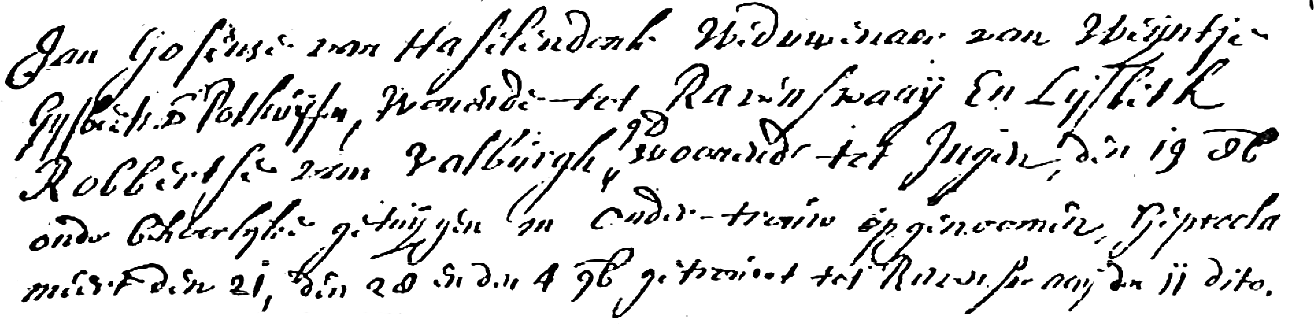 Jan Gosense van Haselendonk Weduwenaer van Weijntje
Gysberts Polhuijse, Wonende tot Ravenswaaij En Lijsbeth
Robbertse van Valburgh, woonende tot Ingen, den 19 8b
onder behoorlyke getuijgen in onder-trouw opgenoomen, Geprocla
meert den 21, den 28 en den 4 9b getrouwt tot Ravenswaaij den 11 dito.